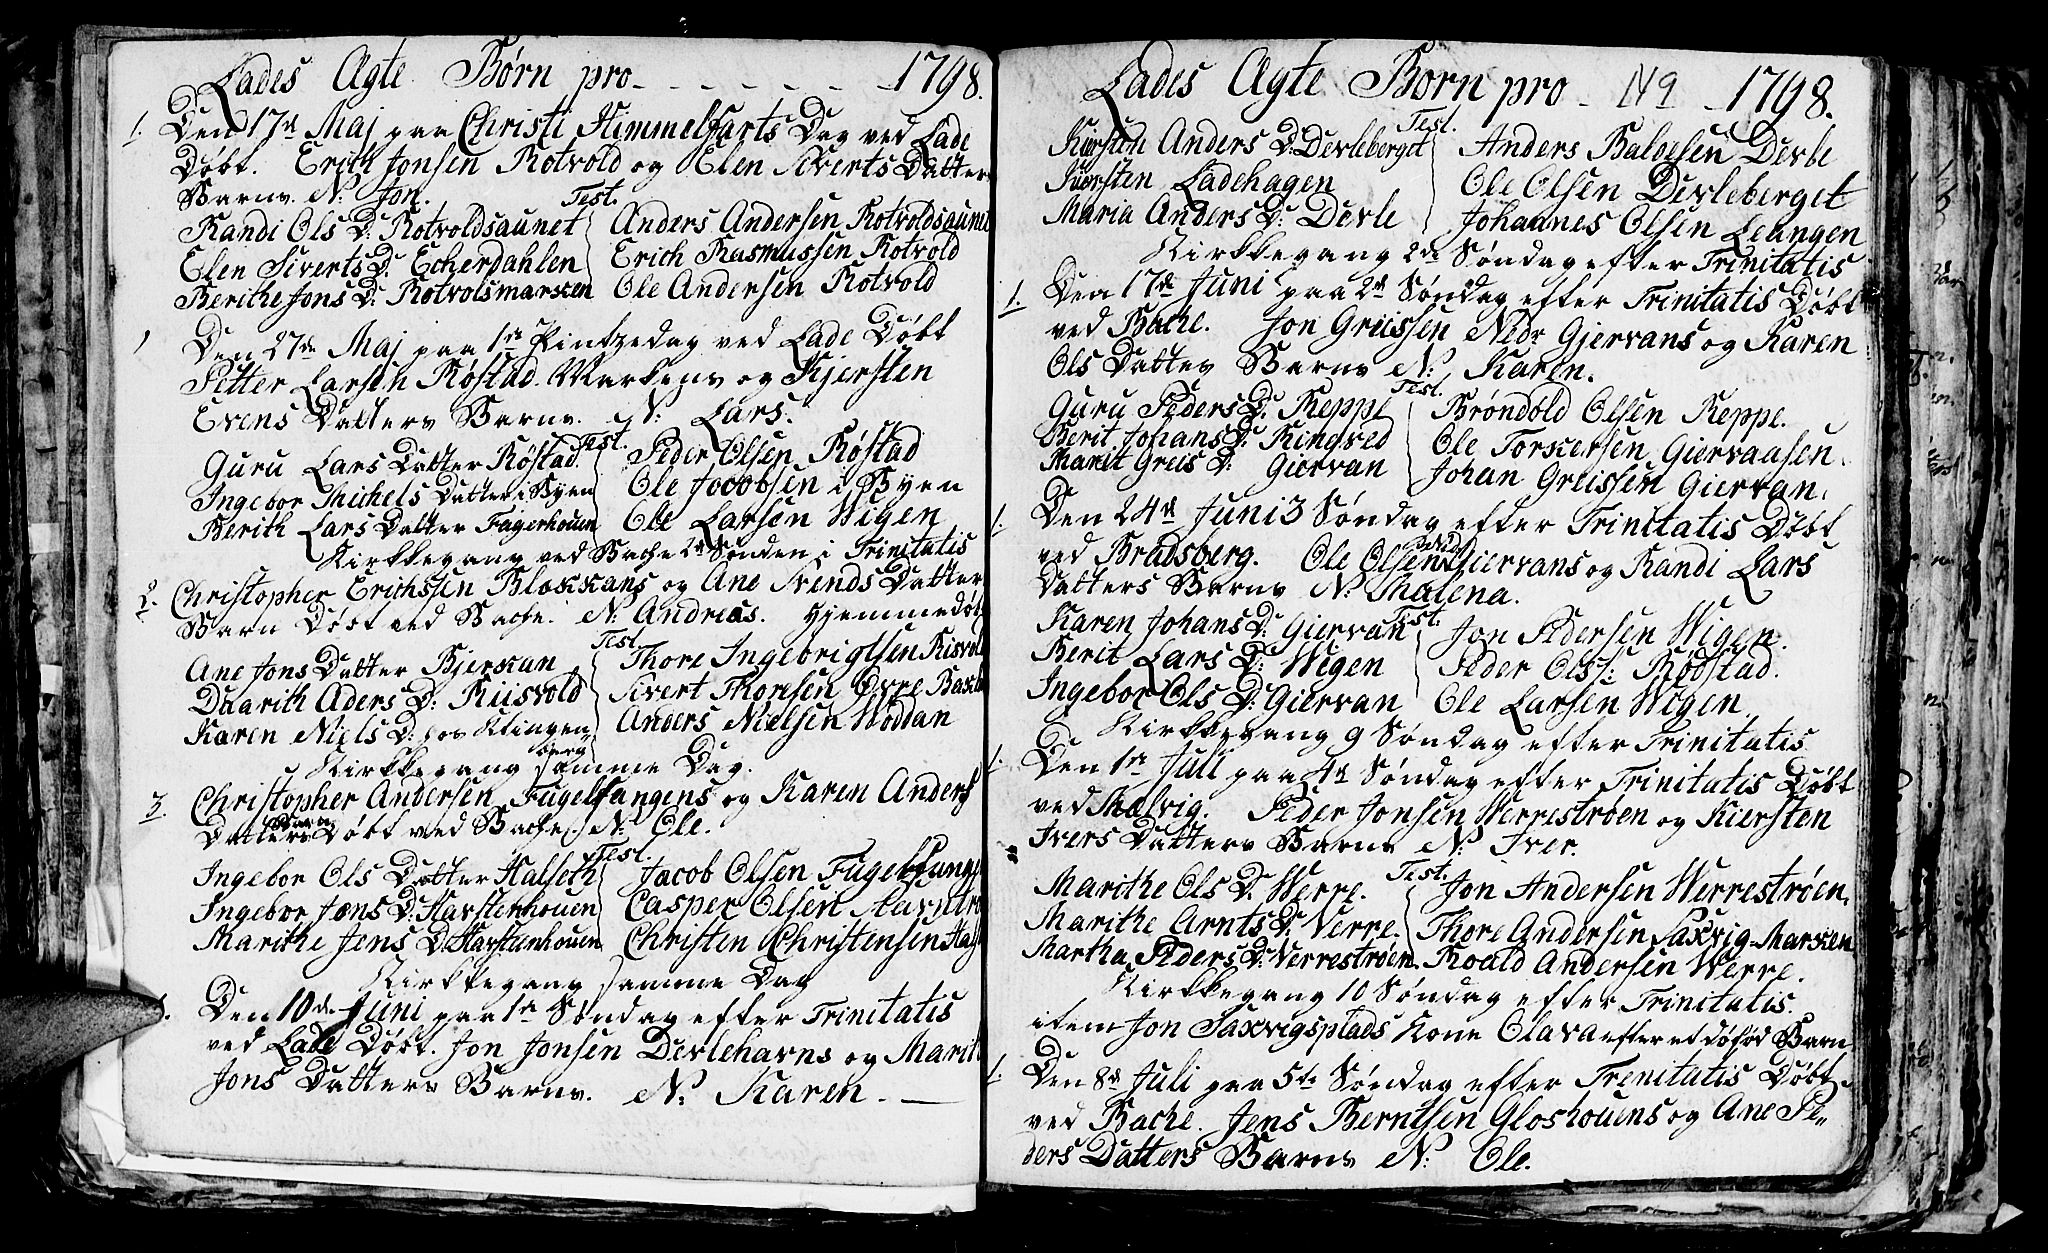 Lades Ægte Børn pro - - - - - - 1798.
1. Den 17de Maj paa Christi Himmelfarts Dag ved Lade
Døbt. Erich Jonsen Rotvold og Elen Siverts Datters
Barns N: Jon.
Test.
Randi Ols D: Rotvoldsaunet
Elen Siverts D: Echerdahlen
Berithe Jons D: Rotvolsmarken
Anders Andersen Rotvoldsaunet
Erich Rasmussen Rotvold
Ole Andersen Rotvold
1 Den 27de Maj paa 1ste Pintzedag ved Lade Døbt
Petter Larsen Røstad Markens og Kjersten
Evens Datters Barns. N: Lars.
Test.
Guru Lars Datter Røstad
Ingebor Michels Datter i Byen
Berith Lars Datter Fagerhouen
Peder Olsen Røstad
Ole Jocobsen i Byen
Ole Larsen Wigen
Kirkkegang ved Bache 2de Sønden i Trinitatis
2. Christopher Erichssen Blokkans og Ane Svends Datter
Barn Døbt ved Bache. N: Andreas. Hjemmedøbt
Test.
Ane Jons Datter Bjerkan
Daarith Aders D: Riisvold
Karen Niels D: hos Klingen
berg
Thore Ingebrigtsen Risvold
Sivert Thoresen Øvre Bakken
Anders Nielsen Woddan
Kirkkegang samme Dag.
3. Christopher Andersen Fugelfangens og Karen Anders
Datters Barn Døbt ved Bache. N: Ole.
Test.
Ingebor Ols Datter Halseth
Ingebor Jons D: Karstenhouen
Marithe Jens D: Karstenhouen
Jacob Olsen Fugelfang
Casper Olsen
Christen Christensen
Kirkkegang samme Dag
Den 10de Juni paa 1ste Søndag efter Trinitatis
ved Lade Døbt. Jon Jonsen Devlehavns og Marit
Jons Datters Barns. N: Karen. —
Lades Ægte Børn pro - 149 - 1798.
Test.
Kiersten Anders D: Devleberget
Kiersten Ladehagen
Maria Anders D: Devle
Anders Baldesen Devle
Ole Olsen Devleberget
Johannes Olsen Leangen
Kirkkegang 2de Søndag efter Trinitatis
1. Den 17de Juni paa 2de Søndag efter Trinitatis Døbt
ved Bache. Jon Greissen Nedr Gjervans og Karen
Ols Datters Barns N: Karen.
Test.
Guru Peders D: Reppe
Berit Johans D: Ringved
Marit Greis D: Giervan
Brøndold Olsen Reppe.
Ole Torkersen Giervaasen.
Johan Greissen Giervan.
1. Den 24de Juni 3 Søndag efter Trinitatis Døbt
ved Bradsberg. Ole Olsen Giervans og Randi Lars
Datters Barns N: Malena.
Test.
Karen Johans D: Giervan
Berit Lars D: Wigen
Ingebor Ols D: Giervan
Jon Pedersen Wigen.
Peder Olss: Røøstad.
Ole Larsen Wigen
Kirkkegang 9 Søndag efter Trinitatis
1. Den 1ste Juli paa 4de Søndag efter Trinitatis Døbt
ved Malvig. Peder Jonsen Werrestrøen og Kiersten
Ivers Datters Barns N: Iver.
Test.
Marithe Ols D: Werre.
Marithe Arnts D: Verre.
Martha Peders D: Verrestrøen.
Jon Andersen Werrestrøen.
Thore Andersen Saxvig-Marken
Roald Andersen Werre.
Kirkkegang 10 Søndag efter Trinitatis.
item Jon Saxvigsplads Kone Olava efter et døfød Barn
1. Den 8de Juli paa 5te Søndag efter Trenitatis Døbt
ved Bache. Jens Berntsen Gloshouens og Ane Pe-
ders Datters Barns N: Ole.